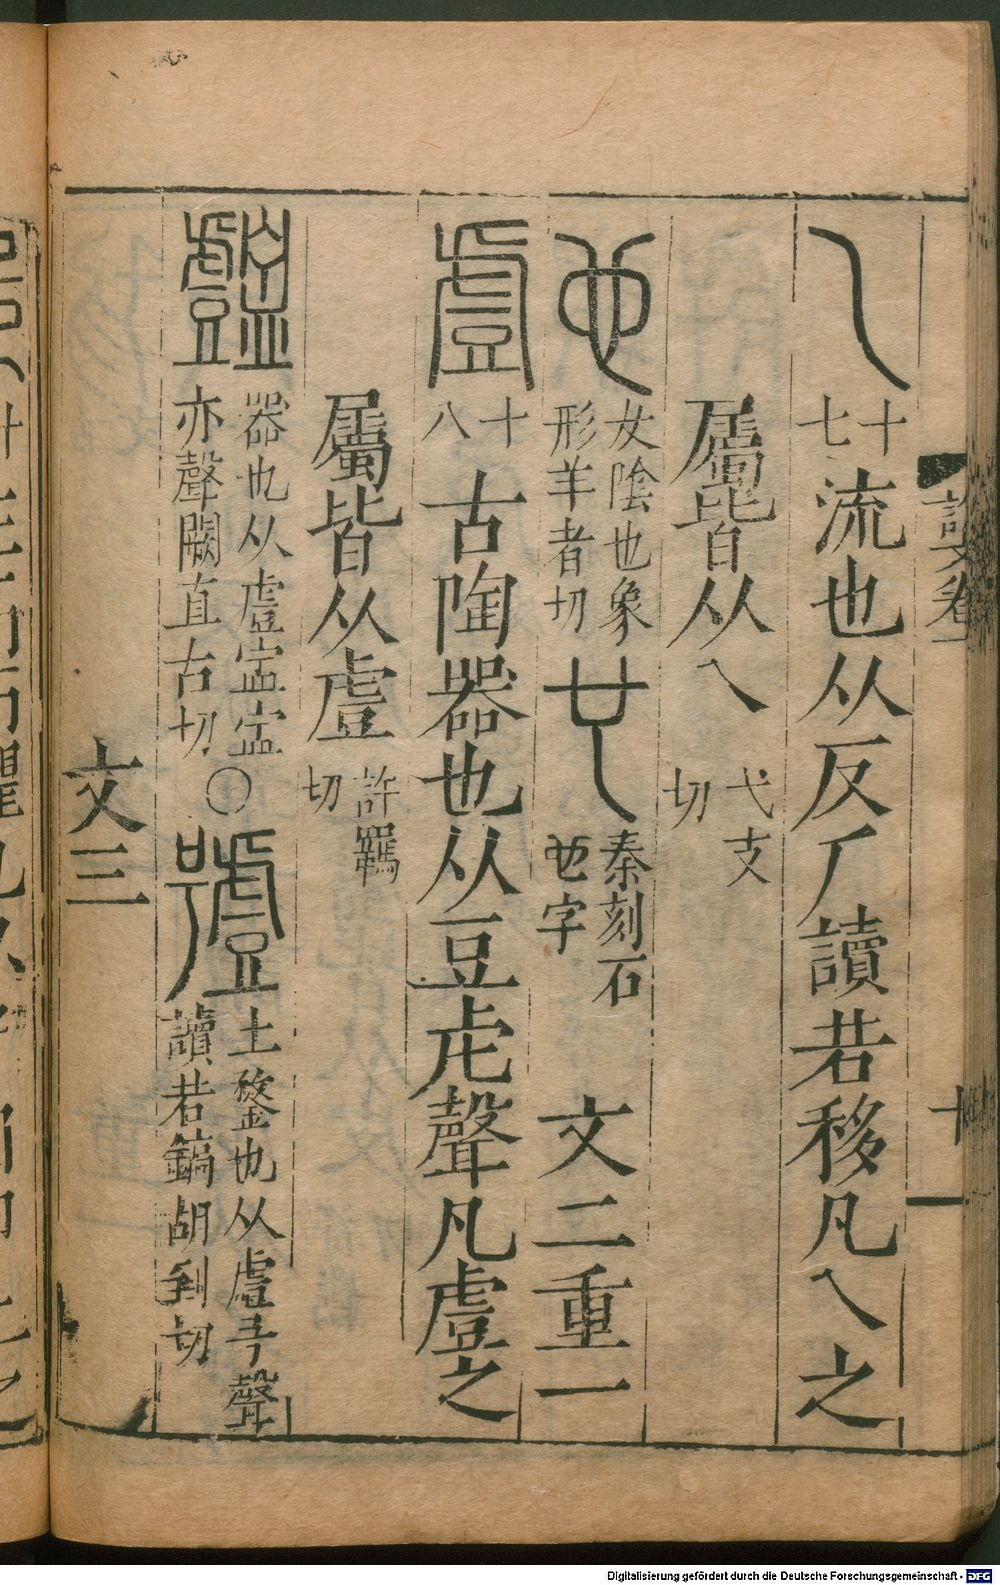 乀 十七 流也从反𠂆讀若移凡乀之
屬皆从乀 弋支切
也 女陰也象形羊者切 秦刻石也字 文二重一
䖒 十八 古陶器也从豆虍聲凡䖒之
屬皆从䖒 許羈切
器也从䖒𥁄𥁄亦聲闕直古切〇 土鍪也从䖒号聲讀若鎬胡到切
文三
說文卷一
十
Digitalisierung gefördert durch die Deutsche Forschungsgemeinschaft - DFG